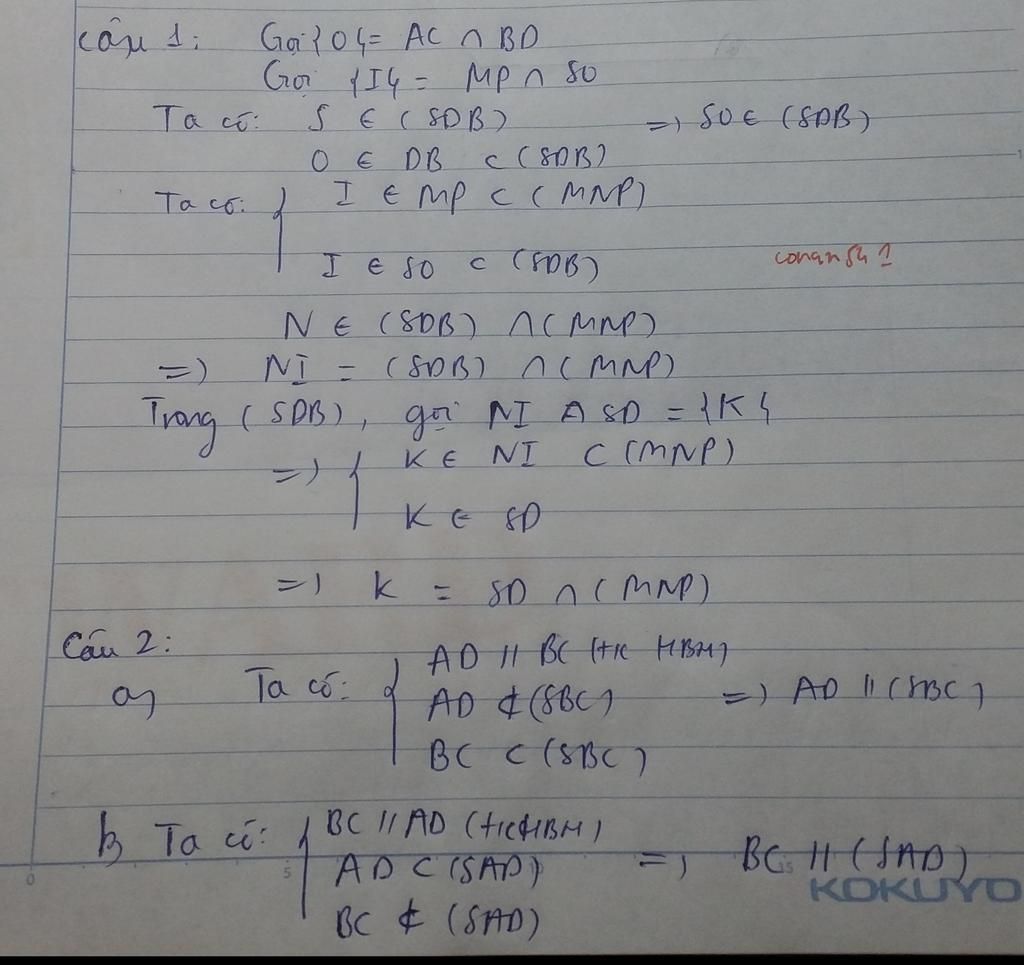 Câu 1: Gọi {O} = AC ∩ BD
Gọi {I} = MP ∩ SO
Ta có: S ∈ (SDB) => SO ∈ (SDB)
O ∈ DB ⊂ (SDB)
Ta có: { I ∈ MP ⊂ (MNP)
I ∈ SO ⊂ (SDB)
conansh1
N ∈ (SDB) ∩ (MNP)
=> NI = (SDB) ∩ (MNP)
Trong (SDB), gọi NI ∩ SD = {K}
=> { K ∈ NI ⊂ (MNP)
K ∈ SD
=> K = SD ∩ (MNP)
Câu 2:
a) Ta có: { AD // BC (t/c HBH)
AD ⊄ (SBC) => AD // (SBC)
BC ⊂ (SBC)
b, Ta có: { BC // AD (t/c HBH)
AD ⊂ (SAD) => BC // (SAD)
BC ⊄ (SAD)
0 5
KOKUYO